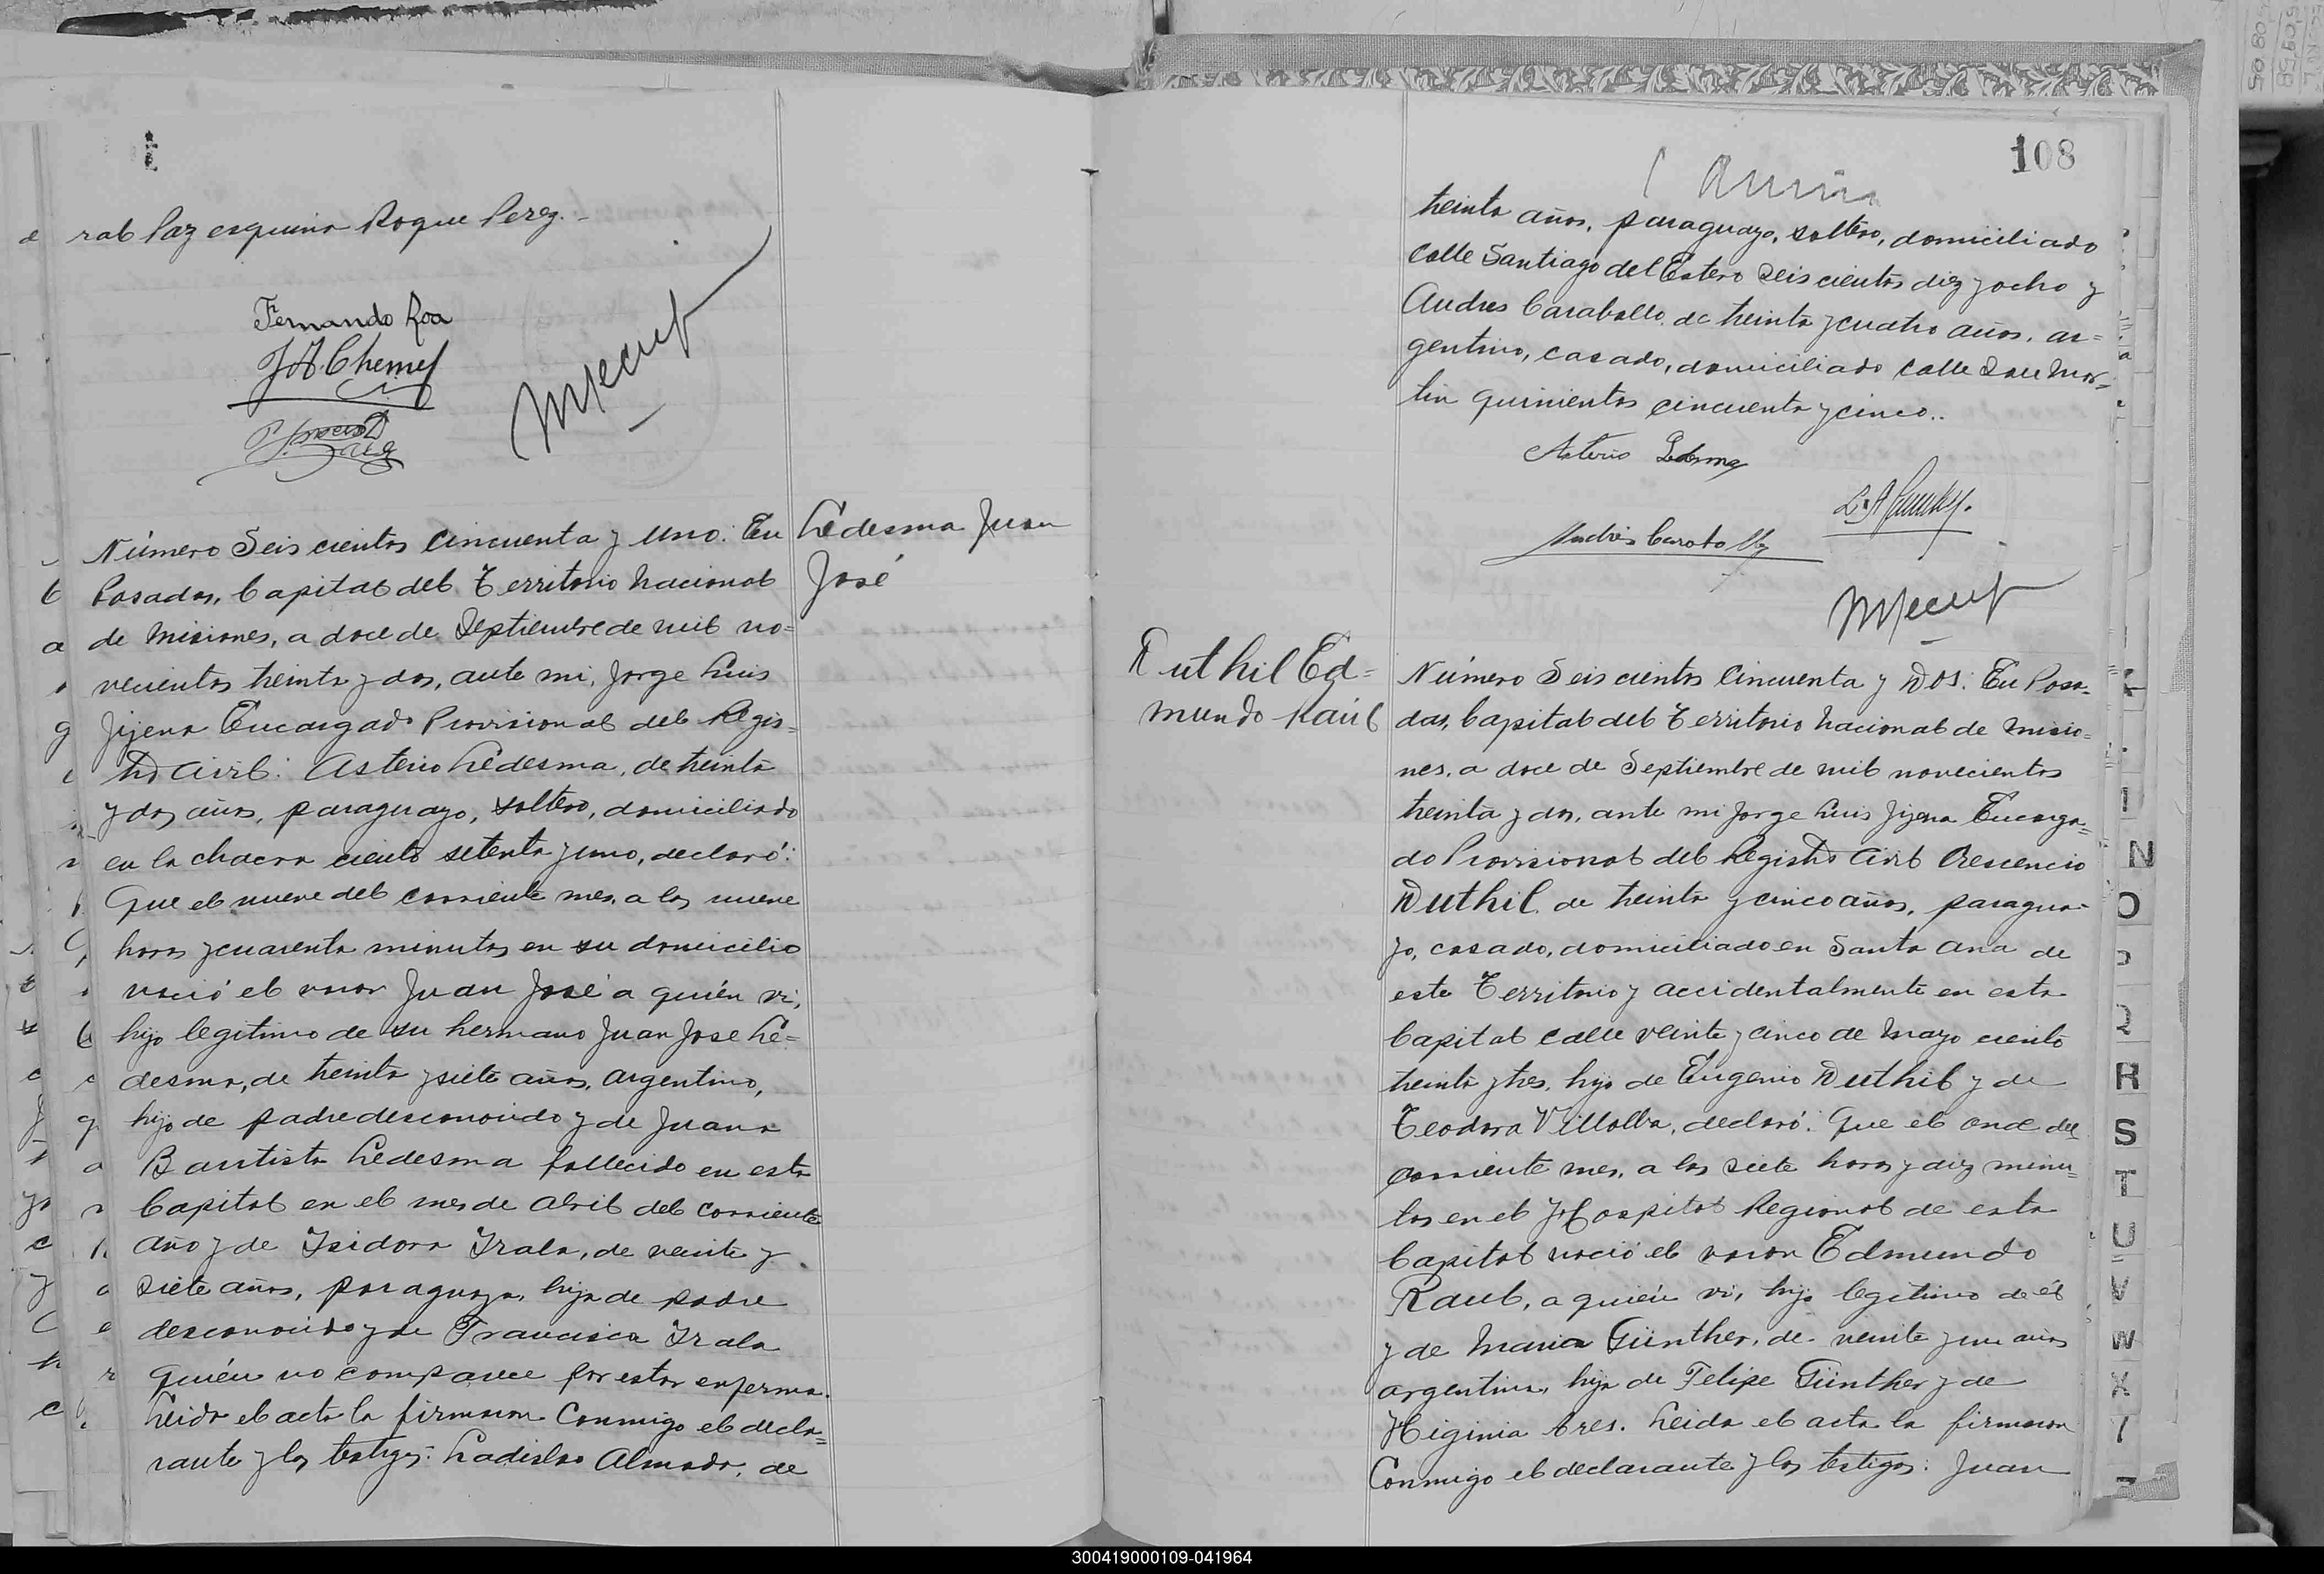 ral Paz esquina Roque Perez.-
Fernando Roa
J A Chemes
Ledesma Juan
José
Número Seis cientos Cincuenta y Uno: En
Posadas, Capital del Territorio Nacional
de Misiones, a doce de Septiembre de mil no=
vecientos treinta y dos, ante mi, Jorge Luis
Jijena Encargado Provisional del Regis=
tro Civil: Asterio Ledesma, de treinta
y dos años, paraguayo, soltero, domiciliado
en la chacra ciento setenta y uno, declaró:
Que el nueve del corriente mes, a las nueve
horas y cuarenta minutos en su domicilio
nació el varon Juan José a quién vi,
hijo legitimo de su hermano Juan Jose Le=
desma, de treinta y siete años, argentino,
hijo de padre desconocido y de Juana
Bautista Ledesma fallecido en esta
Capital en el mes de Abril del corriente
año y de Isidora Irala, de veinte y
siete años, paraguaya, hija de padre
desconocido y de Francisca Irala
quién no comparece por estar enferma.
Leida el acta la firmaron Conmigo el decla=
rante y los testigos: Ladislao Almada, de
108
treinta años, paraguayo, soltero, domiciliado
Calle Santiago del Estero Seis cientos diez y ocho y
Andres Caraballo de treinta y cuatro años, ar=
gentino, casado, domiciliado calle San Mar=
tin quinientos cincuenta y cinco..
Asterio Ledesma
Andrés Caraballo
Duthil Ed=
mundo Raúl
Número Seis cientos Cincuenta y Dos: En Posa=
das, Capital del Territorio Nacional de Misio=
nes, a doce de Septiembre de mil novecientos
treinta y dos, ante mi Jorge Luis Jijena Encarga=
do Provisional del Registro Civil Crescencio
Duthil de treinta y cinco años, paragua=
yo, casado, domiciliado en Santa Ana de
este Territorio y accidentalmente en esta
Capital calle veinte y cinco de Mayo ciento
treinta y tres, hijo de Eugenio Duthil y de
Teodora Villalba, declaró: Que el once del
corriente mes, a las siete horas y diez minu=
tos en el Hospital Regional de esta
Capital nació el varon Edmundo
Raul, a quién vi, hijo legitimo de él
y de Maria Günther, de veinte y un años
argentina, hija de Felipe Günther y de
Higinia Ares. Leida el acta la firmaron
Conmigo el declarante y los testigos: Juan
N
O
R
S
T
U
V
W
X
300419000109-041964